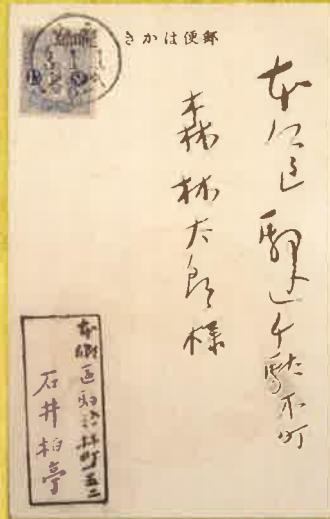 郵便はかき
本江区駒込千駄木町
森林太郎様
本郷区駒込林町五二
石井柏亭